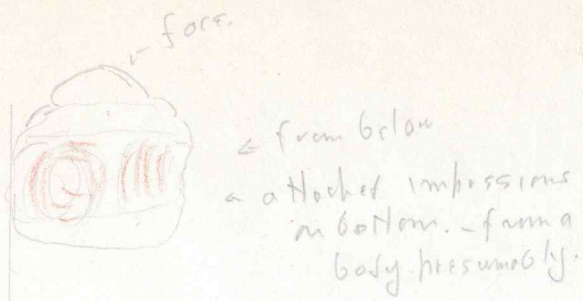 ← face.
← from below
← attachet impressions
on bottom. - from a
body presumably.